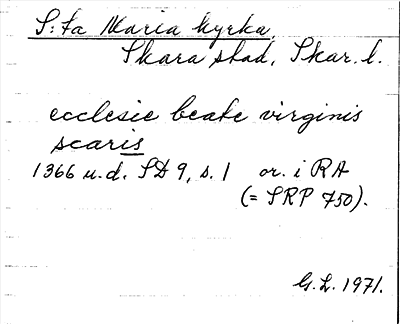 S:ta Maria kyrka,
Skara stad, Skar. l.
ecclesie beate virginis
scaris
1366 u.d. SD 9, s. 1 or. i RA
(= SRP 750).
G.L. 1971.